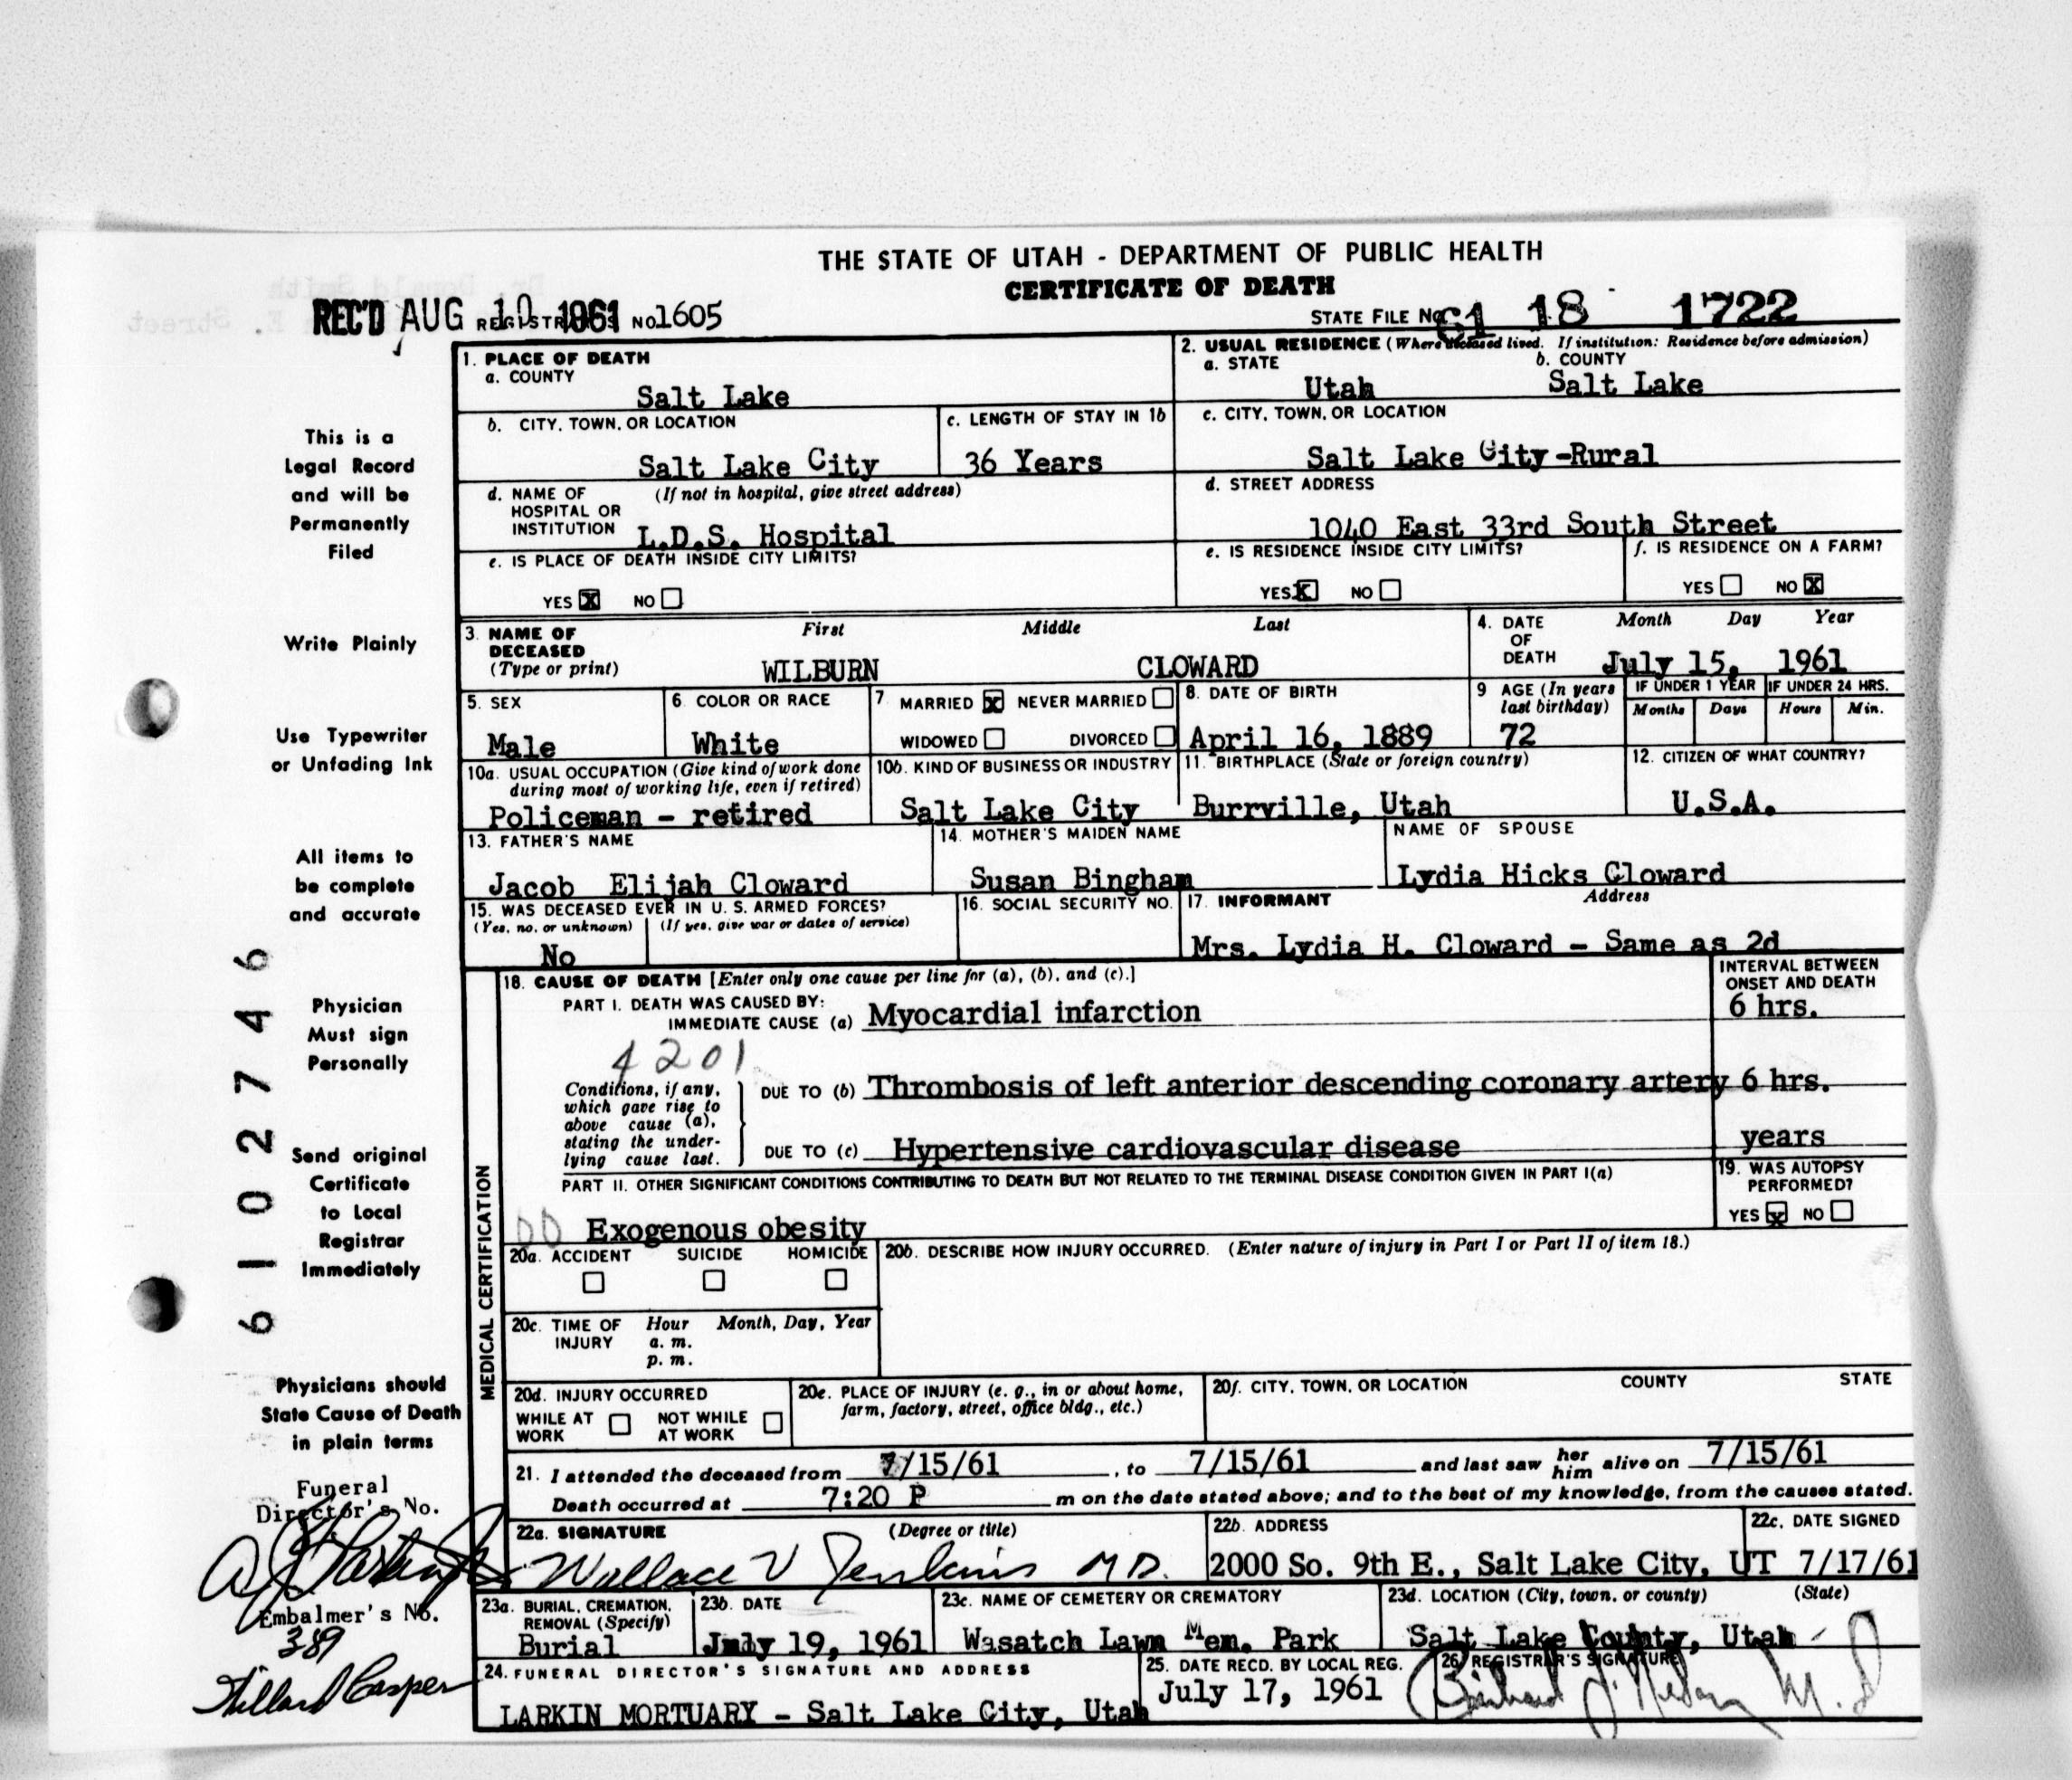 THE STATE OF UTAH - DEPARTMENT OF PUBLIC HEALTH
CERTIFICATE OF DEATH
REC'D AUG 10 1961 REGISTRAR'S NO. 1605
STATE FILE NO. 61 18 1722
This is a
Legal Record
and will be
Permanently
Filed
Write Plainly
Use Typewriter
or Unfading Ink
All items to
be complete
and accurate
Physician
Must sign
Personally
Send original
Certificate
to Local
Registrar
Immediately
Physicians should
State Cause of Death
in plain terms
Funeral
Director's No.
Embalmer's No.
389
Hillard Casper
6102746
1. PLACE OF DEATH
a. COUNTY
Salt Lake
2. USUAL RESIDENCE (Where deceased lived. If institution: Residence before admission)
a. STATE b. COUNTY
Utah Salt Lake
b. CITY, TOWN, OR LOCATION
Salt Lake City
c. LENGTH OF STAY IN 1b
36 Years
c. CITY, TOWN, OR LOCATION
Salt Lake City-Rural
d. NAME OF HOSPITAL OR INSTITUTION (If not in hospital, give street address)
L.D.S. Hospital
d. STREET ADDRESS
1040 East 33rd South Street
e. IS PLACE OF DEATH INSIDE CITY LIMITS?
YES X NO
e. IS RESIDENCE INSIDE CITY LIMITS?
YES X NO
f. IS RESIDENCE ON A FARM?
YES NO X
3. NAME OF DECEASED (Type or print)
First Middle Last
WILBURN CLOWARD
4. DATE OF DEATH Month Day Year
July 15, 1961
5. SEX
Male
6. COLOR OR RACE
White
7. MARRIED X NEVER MARRIED
WIDOWED DIVORCED
8. DATE OF BIRTH
April 16, 1889
9 AGE (In years last birthday)
72
IF UNDER 1 YEAR IF UNDER 24 HRS.
Months Days Hours Min.
10a. USUAL OCCUPATION (Give kind of work done during most of working life, even if retired)
Policeman - retired
10b. KIND OF BUSINESS OR INDUSTRY
Salt Lake City
11. BIRTHPLACE (State or foreign country)
Burrville, Utah
12. CITIZEN OF WHAT COUNTRY?
U.S.A.
13. FATHER'S NAME
Jacob Elijah Cloward
14. MOTHER'S MAIDEN NAME
Susan Bingham
NAME OF SPOUSE
Lydia Hicks Cloward
15. WAS DECEASED EVER IN U. S. ARMED FORCES?
(Yes, no, or unknown) (If yes, give war or dates of service)
No
16. SOCIAL SECURITY NO.
17. INFORMANT Address
Mrs. Lydia H. Cloward - Same as 2d
MEDICAL CERTIFICATION
18. CAUSE OF DEATH [Enter only one cause per line for (a), (b), and (c).]
INTERVAL BETWEEN ONSET AND DEATH
PART I. DEATH WAS CAUSED BY:
IMMEDIATE CAUSE (a) Myocardial infarction 6 hrs.
4201
Conditions, if any, which gave rise to above cause (a), stating the underlying cause last.
DUE TO (b) Thrombosis of left anterior descending coronary artery 6 hrs.
DUE TO (c) Hypertensive cardiovascular disease years
PART II. OTHER SIGNIFICANT CONDITIONS CONTRIBUTING TO DEATH BUT NOT RELATED TO THE TERMINAL DISEASE CONDITION GIVEN IN PART I(a)
Exogenous obesity
19. WAS AUTOPSY PERFORMED?
YES X NO
20a. ACCIDENT SUICIDE HOMICIDE
20b. DESCRIBE HOW INJURY OCCURRED. (Enter nature of injury in Part I or Part II of item 18.)
20c. TIME OF INJURY Hour Month, Day, Year
a. m.
p. m.
20d. INJURY OCCURRED
WHILE AT WORK NOT WHILE AT WORK
20e. PLACE OF INJURY (e. g., in or about home, farm, factory, street, office bldg., etc.)
20f. CITY, TOWN, OR LOCATION COUNTY STATE
21. I attended the deceased from 7/15/61, to 7/15/61 and last saw her him alive on 7/15/61
Death occurred at 7:20 P m on the date stated above; and to the best of my knowledge, from the causes stated.
22a. SIGNATURE (Degree or title)
Wallace V Jenkins MD.
22b. ADDRESS
2000 So. 9th E., Salt Lake City, UT
22c. DATE SIGNED
7/17/61
23a. BURIAL, CREMATION, REMOVAL (Specify)
Burial
23b. DATE
July 19, 1961
23c. NAME OF CEMETERY OR CREMATORY
Wasatch Lawn Mem. Park
23d. LOCATION (City, town, or county) (State)
Salt Lake County, Utah
24. FUNERAL DIRECTOR'S SIGNATURE AND ADDRESS
LARKIN MORTUARY - Salt Lake City, Utah
25. DATE RECD. BY LOCAL REG.
July 17, 1961
26. REGISTRAR'S SIGNATURE
M.D